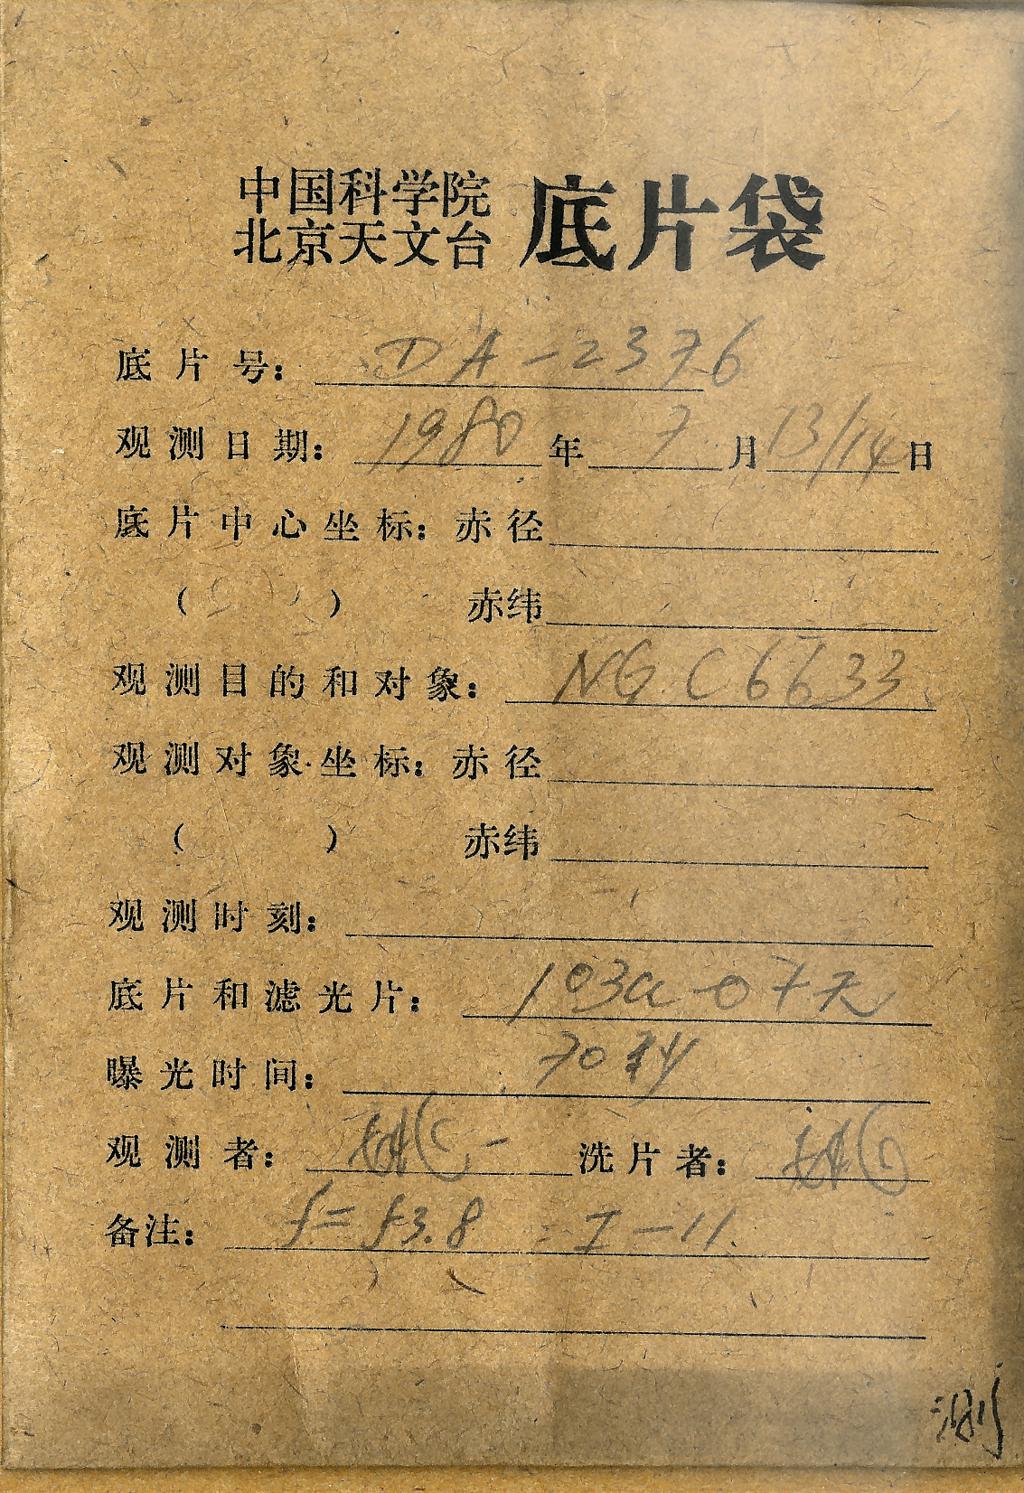 中国科学院
北京天文台 底片袋
底片号： DA-2376
观测日期： 1980 年 7 月 13/14 日
底片中心坐标：赤径
（ ） 赤纬
观测目的和对象： NGC6633
观测对象坐标：赤径
（ ） 赤纬
观测时刻：
底片和滤光片： 103a-O 7天
曝光时间： 70秒
观测者： 洗片者：
备注： f=53.8 I-11.
测